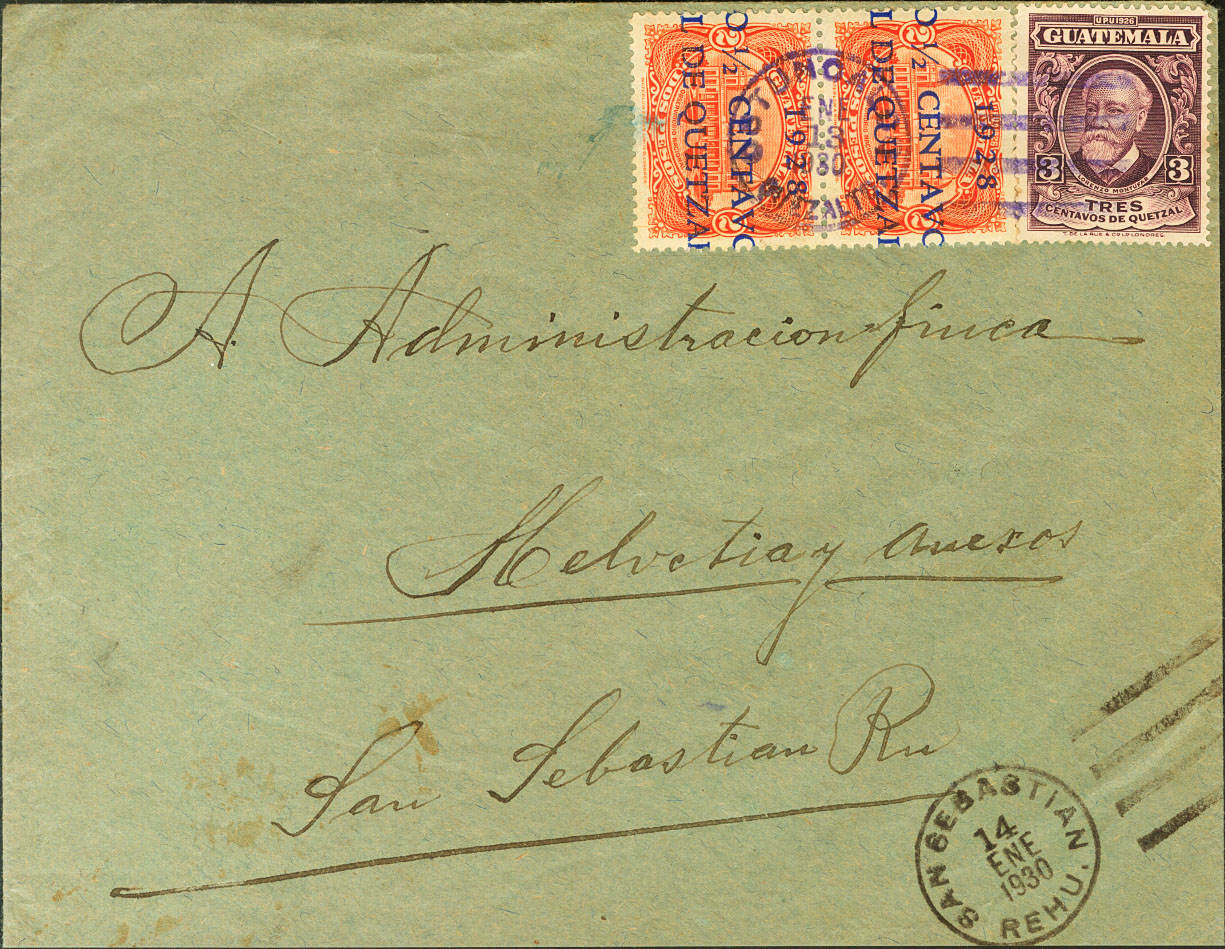 UPU 1926
GUATEMALA
3 3
LORENZO MONTUFAR
TRES
CENTAVOS DE QUETZAL
T. DE LA RUE & CO. LD. LONDRES.
1928
O ½ CENTAVO
L DE QUETZAL
2
2
1928
O ½ CENTAVO
L DE QUETZAL
2
2
ENE
13
1930
A. Administracion finca
Helvetia y anexos
San Sebastian Ru
SAN SEBASTIAN
14
ENE
1930
REHU.